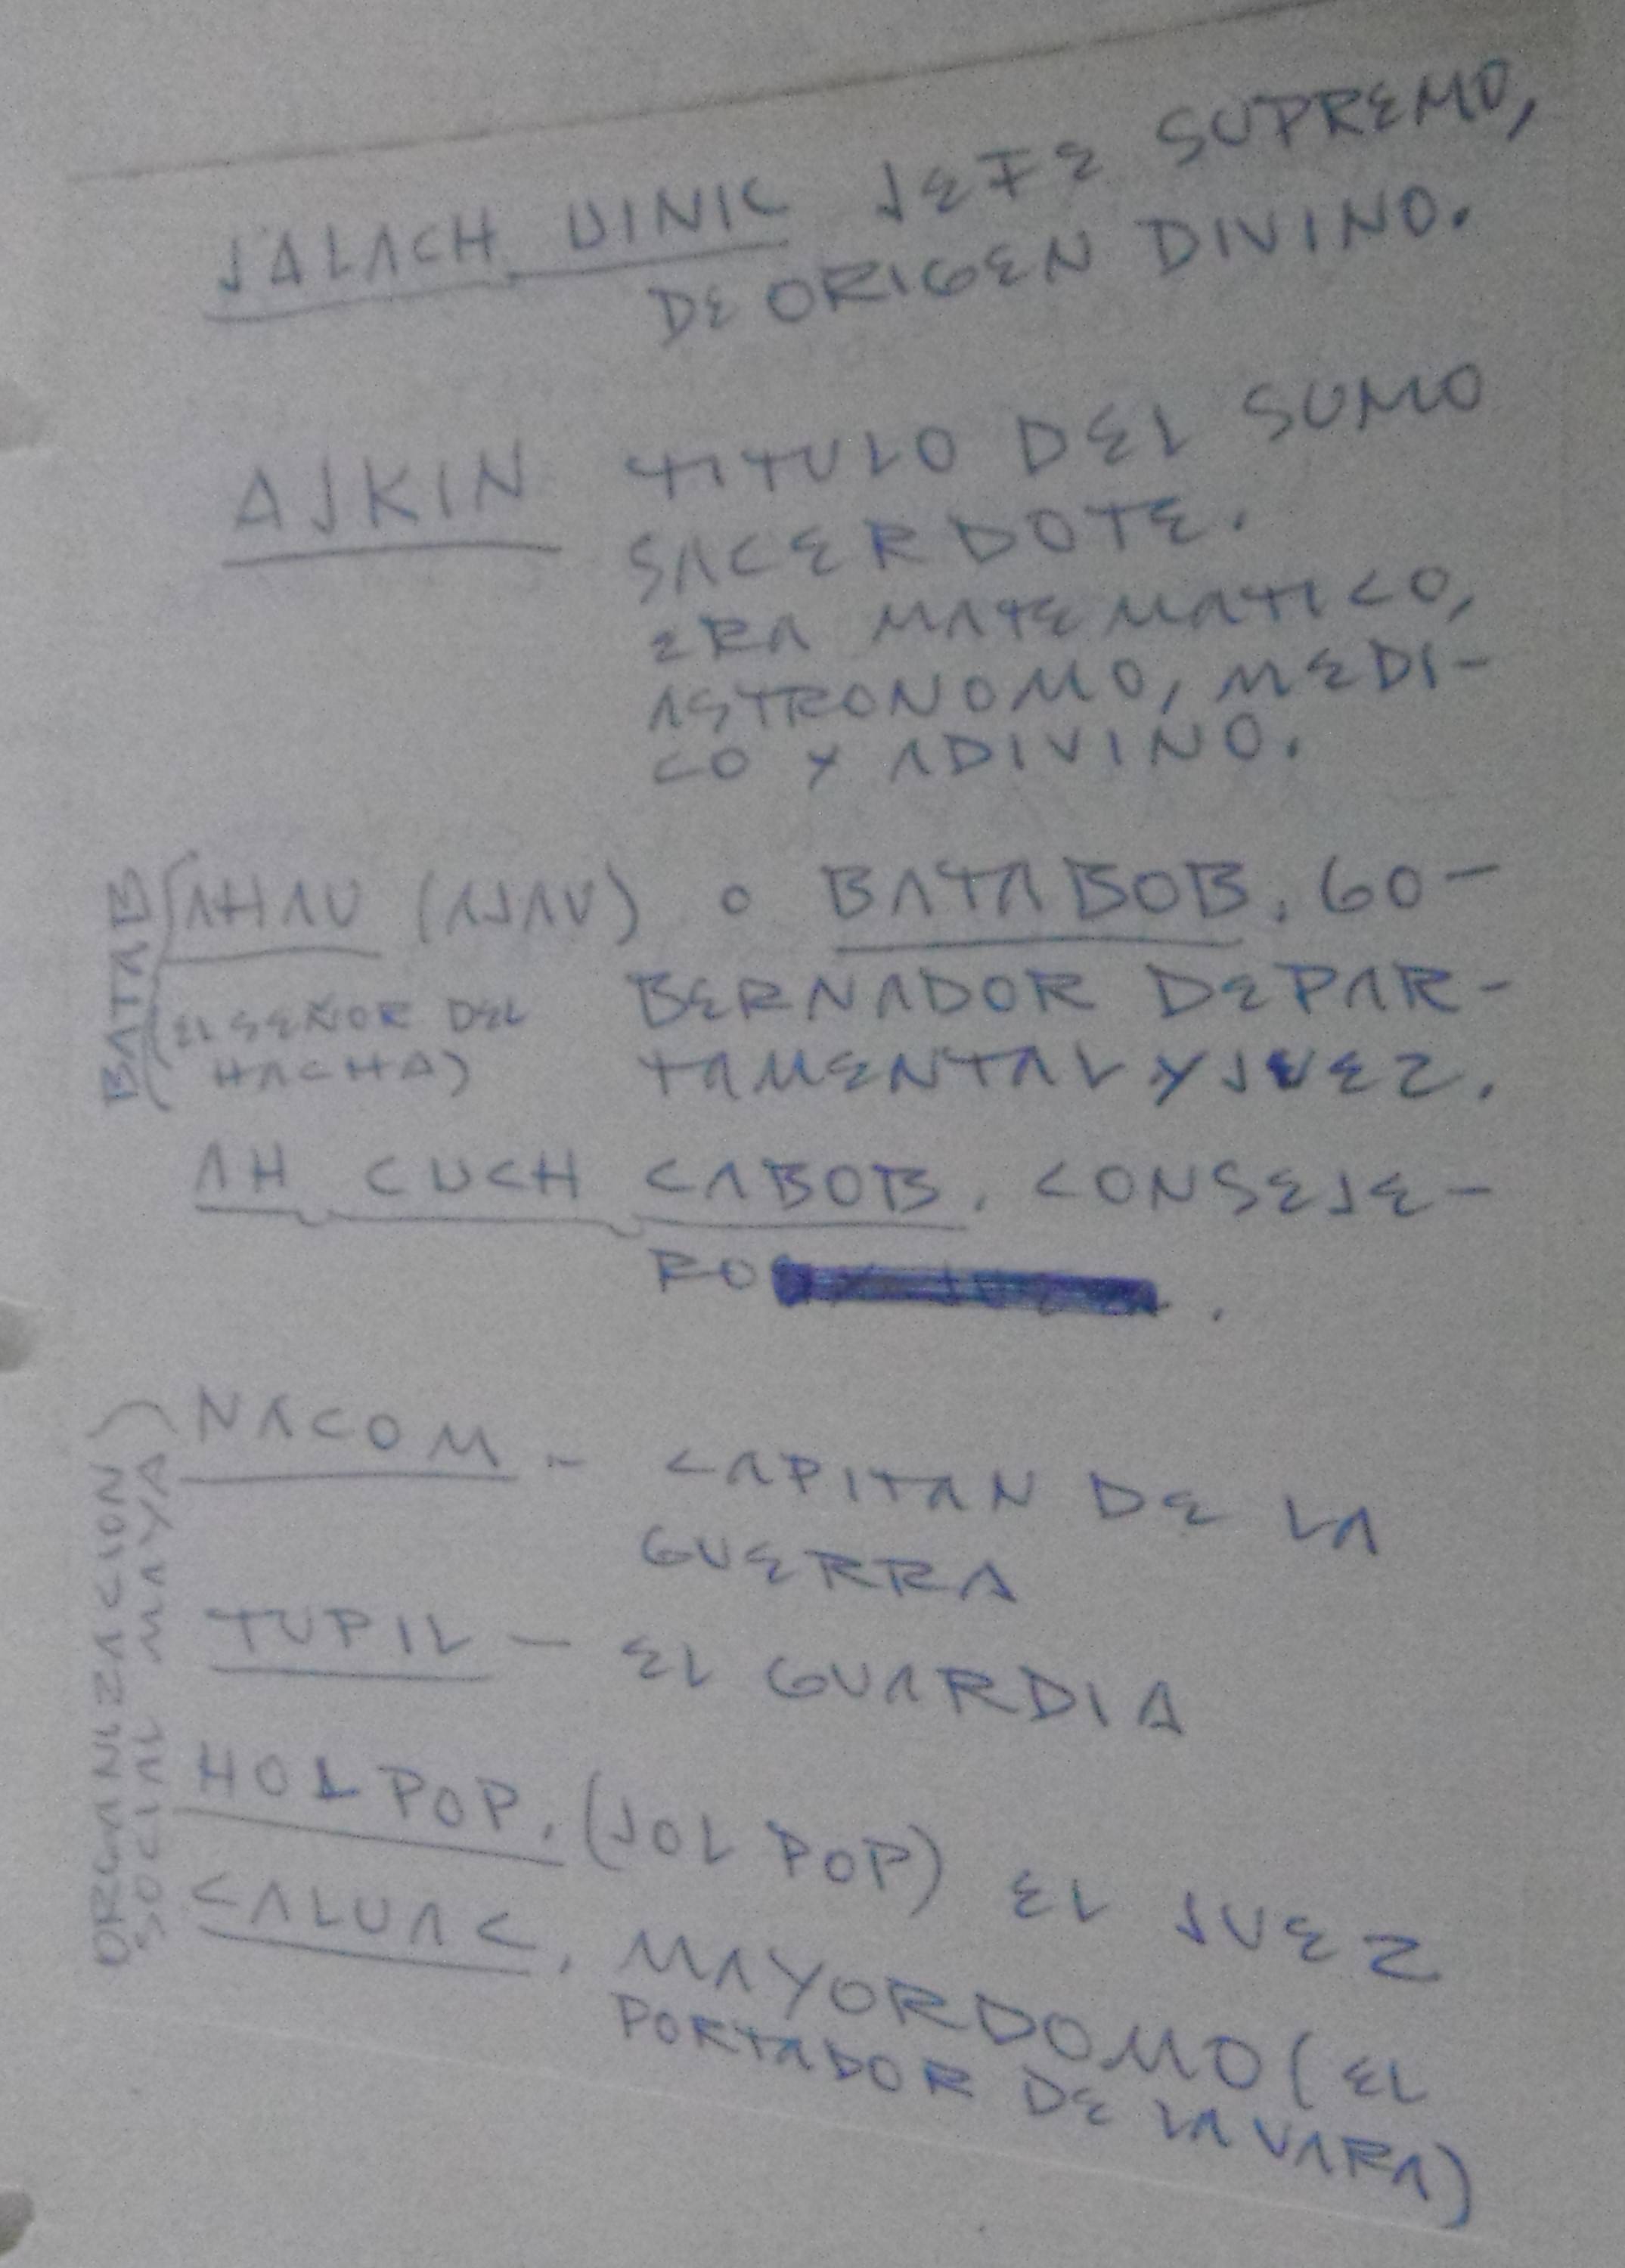 JALACH UINIC JEFE SUPREMO,
DE ORIGEN DIVINO.
AJKIN TITULO DEL SUMO
SACERDOTE.
ERA MATEMATICO,
ASTRONOMO, MEDI-
CO Y ADIVINO.
BATAB
AHAU (AJAU) O BATABOB. GO-
BERNADOR DEPAR-
(EL SEÑOR DEL
HACHA)
TAMENTAL Y JUEZ.
AH CUCH CABOB. CONSEJE-
RO .
ORGANIZACION
SOCIAL MAYA
NACOM - CAPITAN DE LA
GUERRA
TUPIL - EL GUARDIA
HOL POP. (JOL POP) EL JUEZ
CALUAC, MAYORDOMO (EL
PORTADOR DE LA VARA)